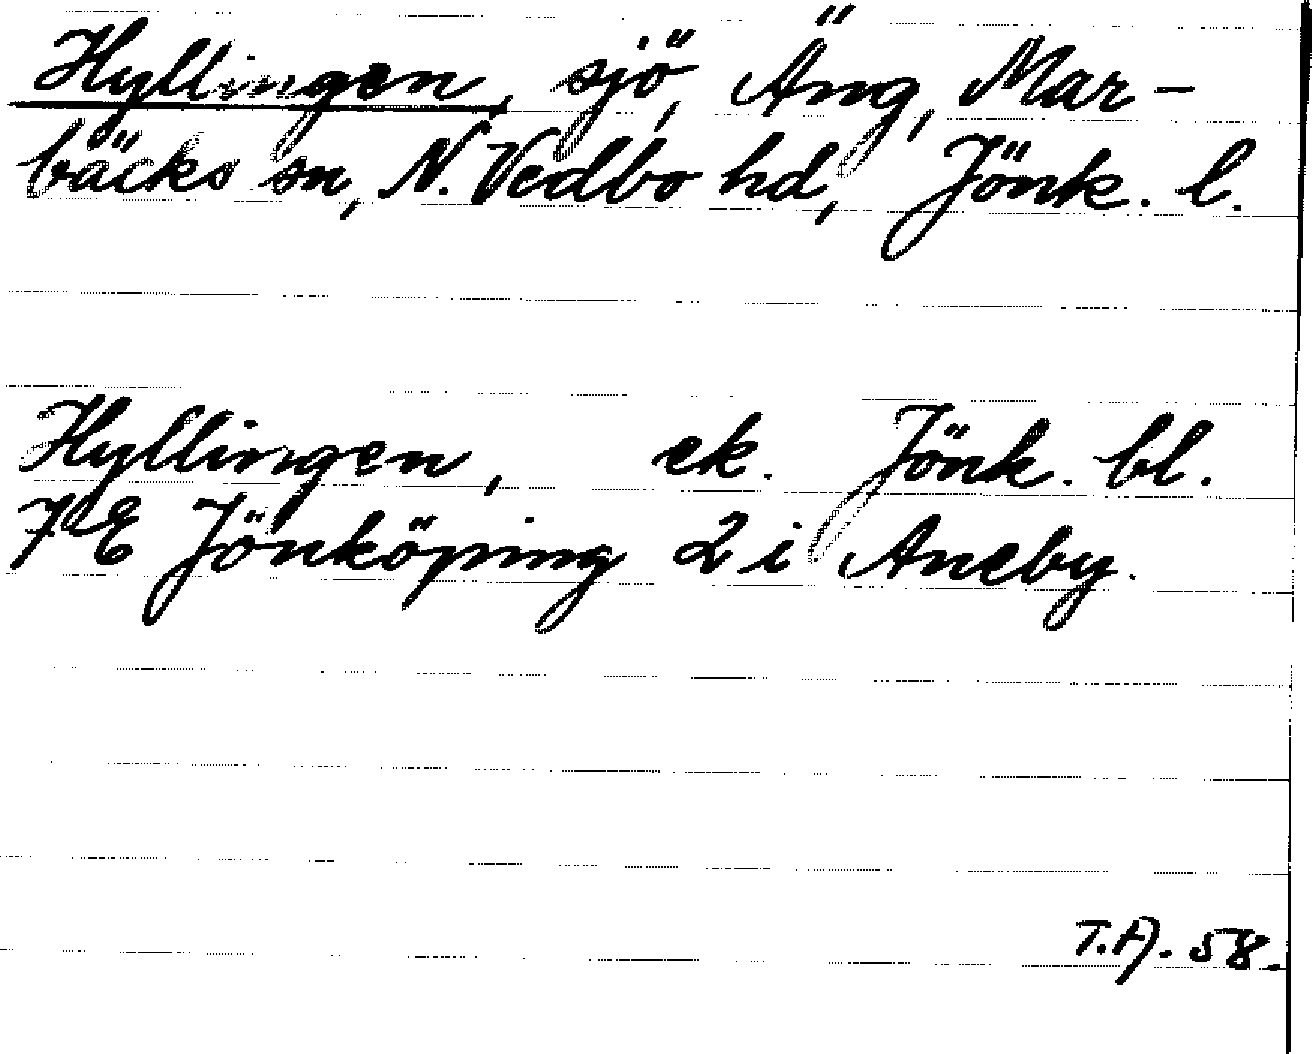 Hyllingen, sjö, Äng, Mar-
bäcks sn, N. Vedbo hd, Jönk. l.
Hyllingen, ek. Jönk. bl.
7 E Jönköping 2 i Aneby.
T.A. 58.